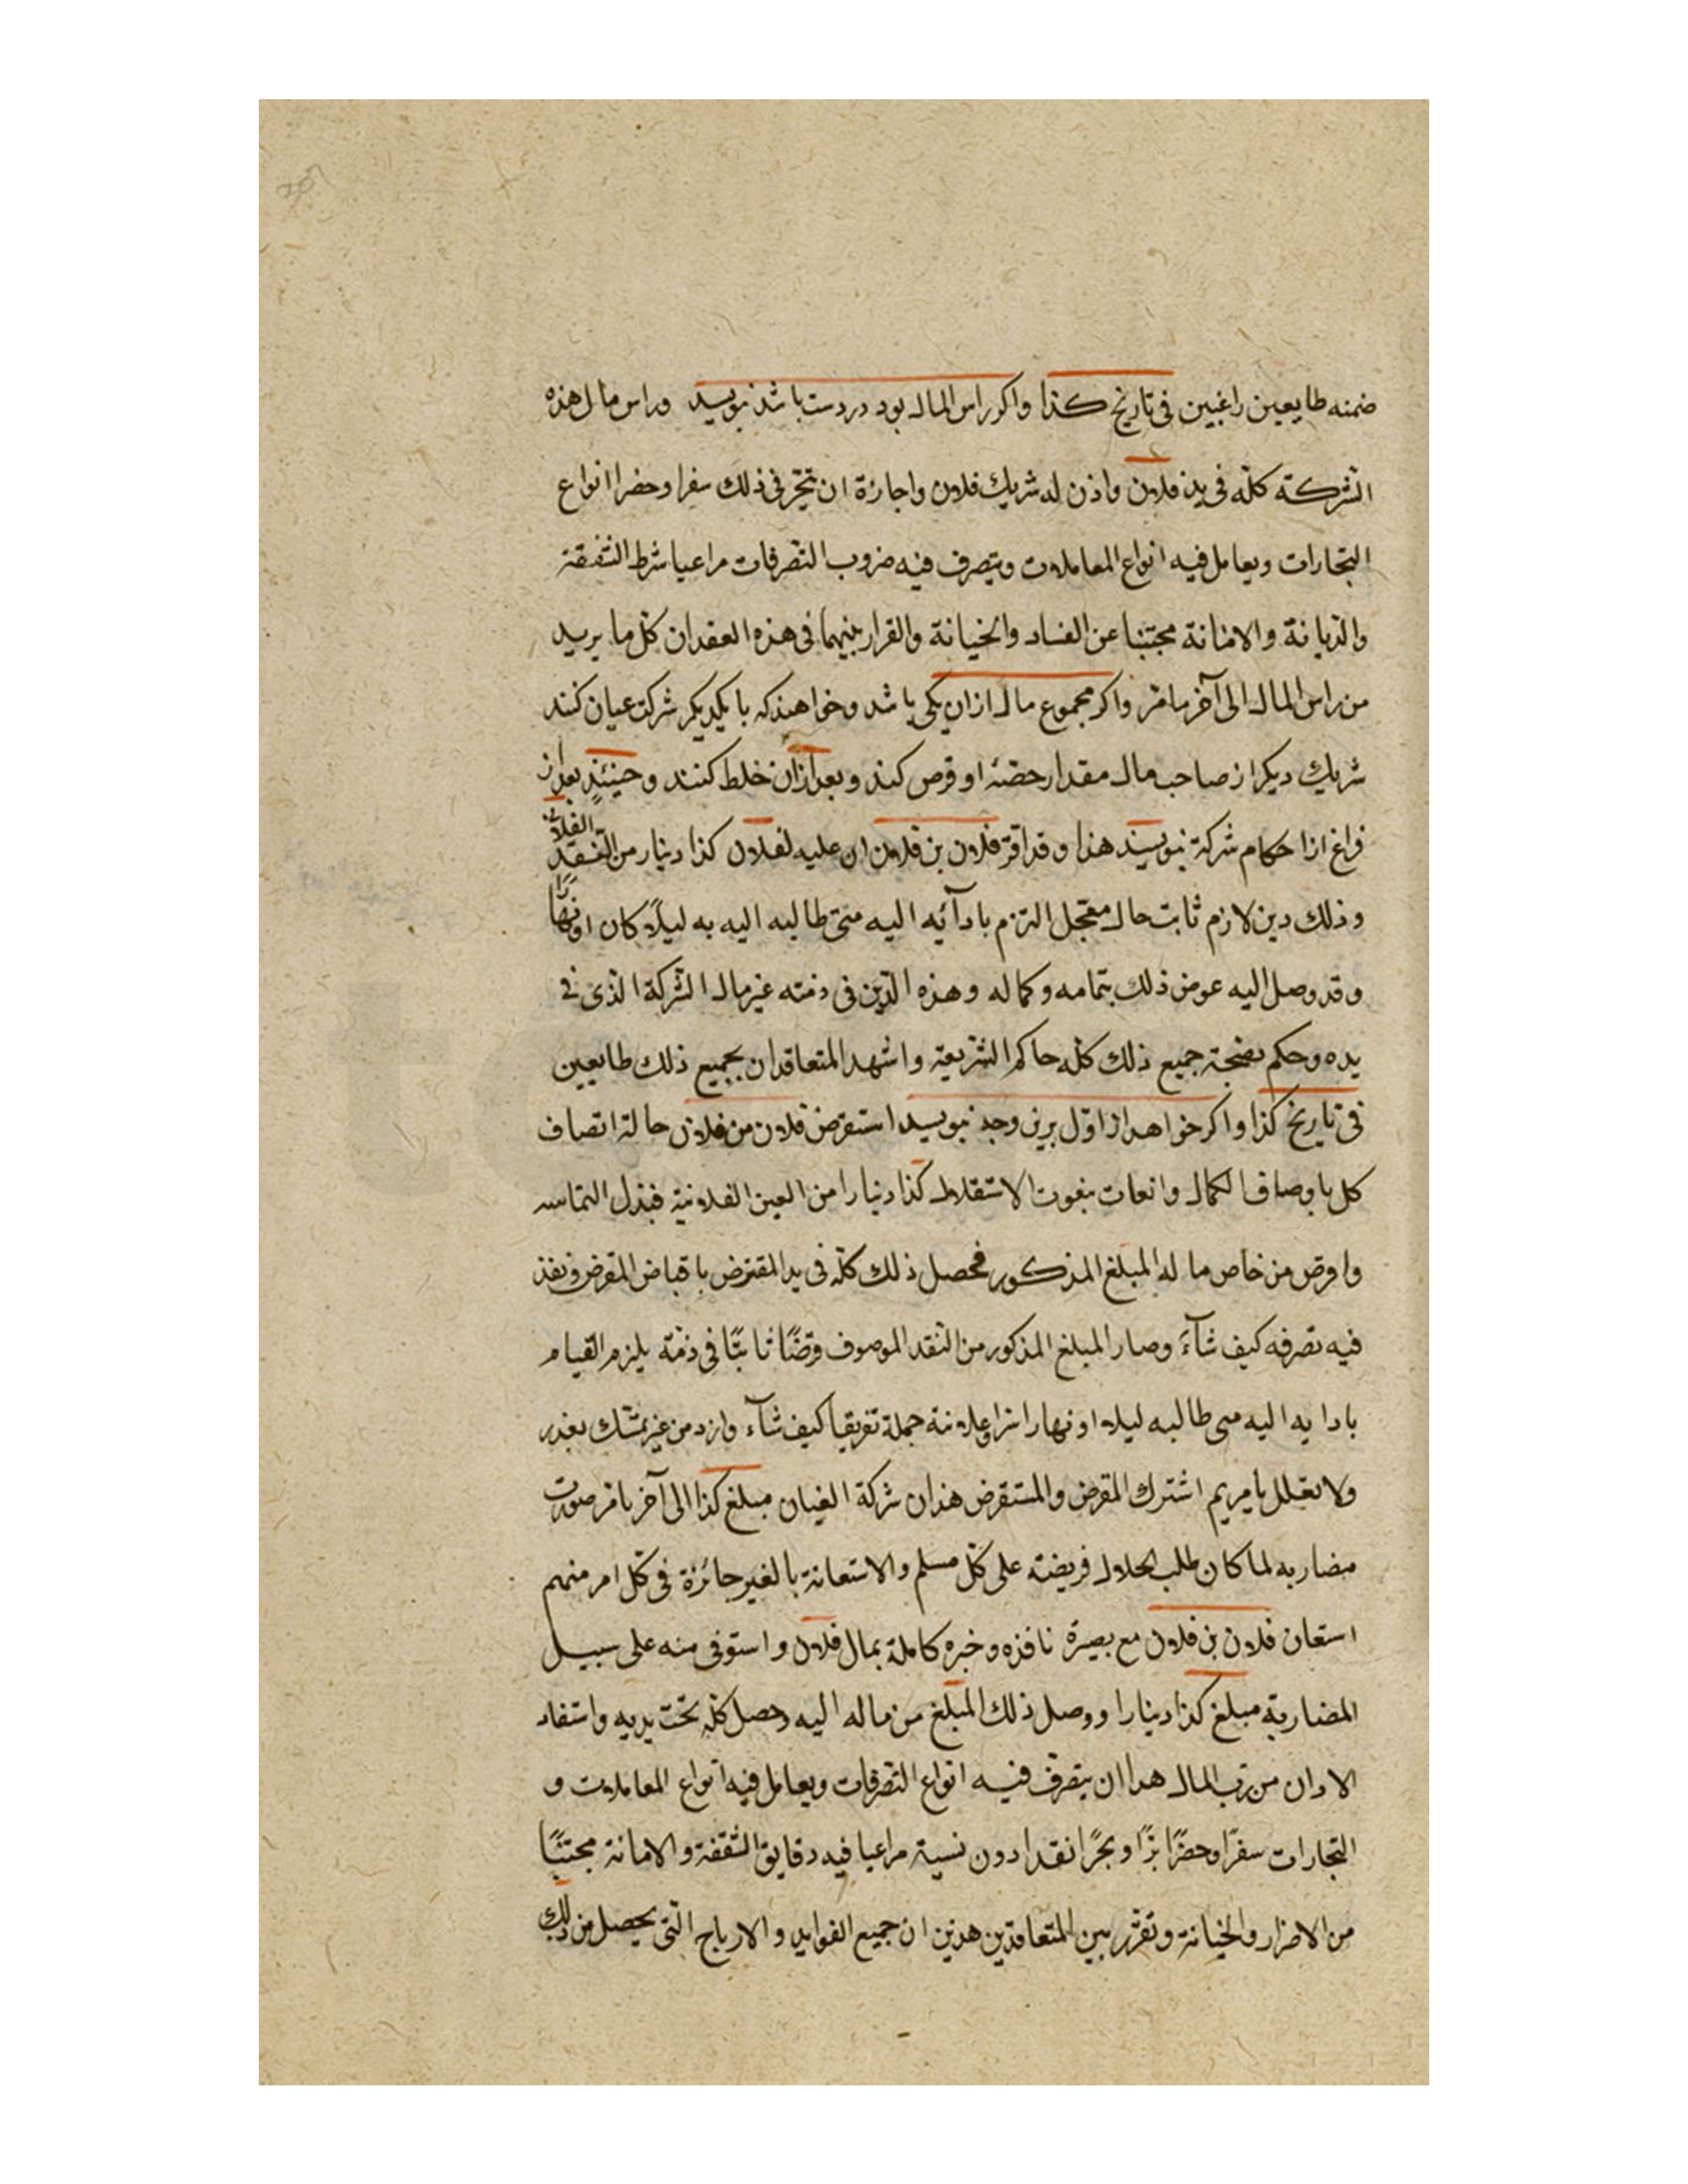 ضمنه طايعين راغبين فى تاريخ كذا واكر راس المال بود در دست باشد نبويسد وراس مال هذه
الشركة كلّه فى يد فلان واذن له شريك فلان واجازة ان يتّجر فى ذلك سفرا وحضرا انواع
التجارات ويعامل فيه انواع المعاملات ويتصرف فيه ضروب التصرفات مراعيا شرط الشفقة
والديانة والامانة مجتنبا عن الفساد والخيانة والقرار بينهما فى هذه العقد ان كل ما يريد
من راس المال الى آخر ما مرّ واكر مجموع مال ازان يكى باشد وخواهند كه با يكديكر شركت عيان كنند
شريك ديكر از صاحب مال مقدار حصّهٔ او قرض كند وبعد ازان خلط كنند وحينئذٍ بعد از
فراغ از احكام شركة نبويسند هذا وقد اقرّ فلان بن فلان ان عليه لفلان كذا دينار من النّقد الفلانى
وذلك دين لازم ثابت حال معجّل التزم بادآئه اليه متى طالبه اليه به ليلًا كان او نهارًا
وقد وصل اليه عوض ذلك بتمامه وكماله وهذه الدّين فى ذمته غير مال الشركة الذى فى
يده وحكم بصحّة جميع ذلك كلّه حاكم الشريعة واشهد المتعاقدان بجميع ذلك طايعين
فى تاريخ كذا واكر خواهد از اوّل برين وجه نبويسد استقرض فلان من فلان حالة اتصاف
كل باوصاف الكمال وانعات بنعوت الاستقلال كذا دينارا من العين الفلانية فبذل التماسه
واقرض من خاص ماله المبلغ المذكور فحصل ذلك كلّه فى يد المقترض باقباض المقرض ونفذ
فيه تصرفه كيف شآءَ وصار المبلغ المذكور من النقد الموصوف قرضًا ثابتًا فى ذمّة يلزم القيام
بادايه اليه متى طالبه ليلا او نهارا سرا وعلانية جملة تفريقا كيف شآء وازد من غير تمسّك بعذر
ولا تعلل بامر يم اشترك المقرض والمستقرض هذان شركة العيان مبلغ كذا الى آخر ما مر صورت
مضاربه لما كان طلب الحلال فريضته على كلّ مسلم والاستعانة بالغير جائزة فى كلّ امر منهم
استعان فلان بن فلان مع بصيرة نافذه وخبره كاملة بمال فلان واستوفى منه على سبيل
المضاربة مبلغ كذا دينارا ووصل ذلك المبلغ من ماله اليه وحصل كلّه تحت يديه واستفاد
الادان من ربّ المال هذا ان يتصرف فيه انواع التصرفات ويعامل فيه انواع المعاملات و
التجارات سفرًا وحضرًا برًّا وبحرًا نقدا دون نسية مراعيا فيه دقايق الشفقة والامانة مجتنبًا
من الاضرار والخيانة وتقرّر بين المتعاقدين هذين ان جميع الفوايد والارباح التى يحصل من ذلك